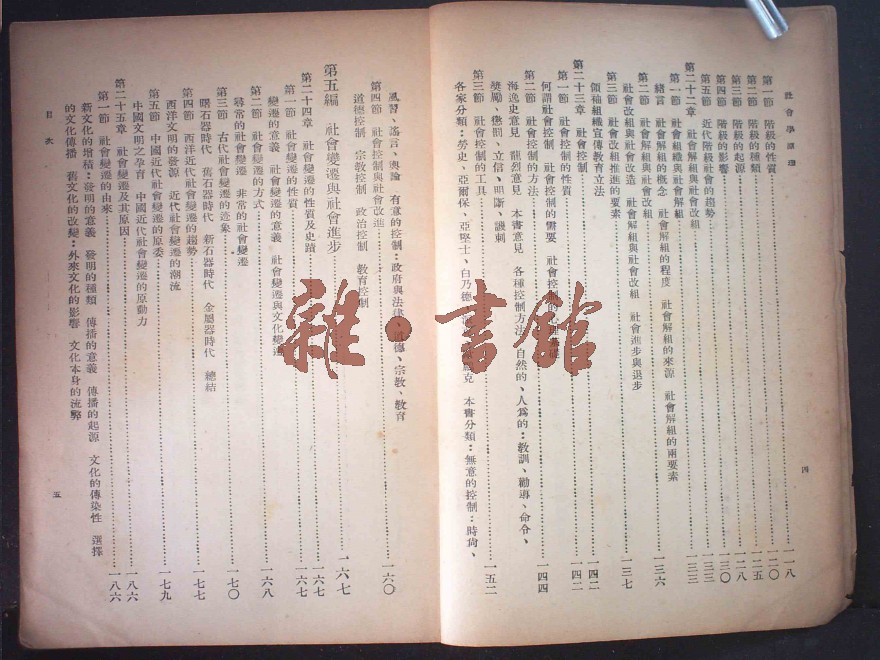 社會學原理
第一節　階級的性質……一一八
第二節　階級的種類……一二〇
第三節　階級的起源……一二五
第四節　階級的影響……一二八
第五節　近代階級社會的趨勢……一三〇
第二十二章　社會解組與社會改組……一三三
第一節　社會組織與社會解組……一三三
緒言　社會解組的概念　社會解組的程度　社會解組的來源　社會解組的兩要素
第二節　社會解組與社會改組……一三六
社會改組與社會改造　社會解組與社會改組　社會進步與退步
第三節　社會改組推進的要素……一三七
領袖組織宣傳教育立法
第二十三章　社會控制……一四二
第一節　社會控制的性質……一四二
何謂社會控制　社會控制的需要　社會控制的
第二節　社會控制的方法……一四四
海逸史意見　龍烈意見　本書意見　各種控制方法：自然的、人爲的：教訓、勸導、命令、
獎勵、懲罰、立信、明斷、譏刺
第三節　社會控制的工具……一五二
各家分類：勞史、亞爾保、亞堅士、白乃德、克　本書分類：無意的控制：時尚、
四
風習、謠言、輿論　有意的控制：政府與法律、道德、宗教、教育
第四節　社會控制與社會改進……一六〇
道德控制　宗教控制　政治控制　教育控制
第五編　社會變遷與社會進步……一六七
第二十四章　社會變遷的性質及史蹟……一六七
第一節　社會變遷的性質……一六七
變遷的意義　社會變遷的意義　社會變遷與文化變遷
第二節　社會變遷的方式……一六八
尋常的社會變遷　非常的社會變遷
第三節　古代社會變遷的迹象……一七〇
曙石器時代　舊石器時代　新石器時代　金屬器時代　總結
第四節　西洋近代社會變遷的趨勢……一七七
西洋文明的發源　近代社會變遷的潮流
第五節　中國近代社會變遷的原委……一七九
中國文明之孕育　中國近代社會變遷的原動力
第二十五章　社會變遷及其原因……一八六
第一節　社會變遷的由來……一八六
新文化的增積：發明的意義　發明的種類　傳播的意義　傳播的起源　文化的傳染性　選擇
的文化傳播　舊文化的改變：外來文化的影響　文化本身的流弊
目次
五
雜·書館